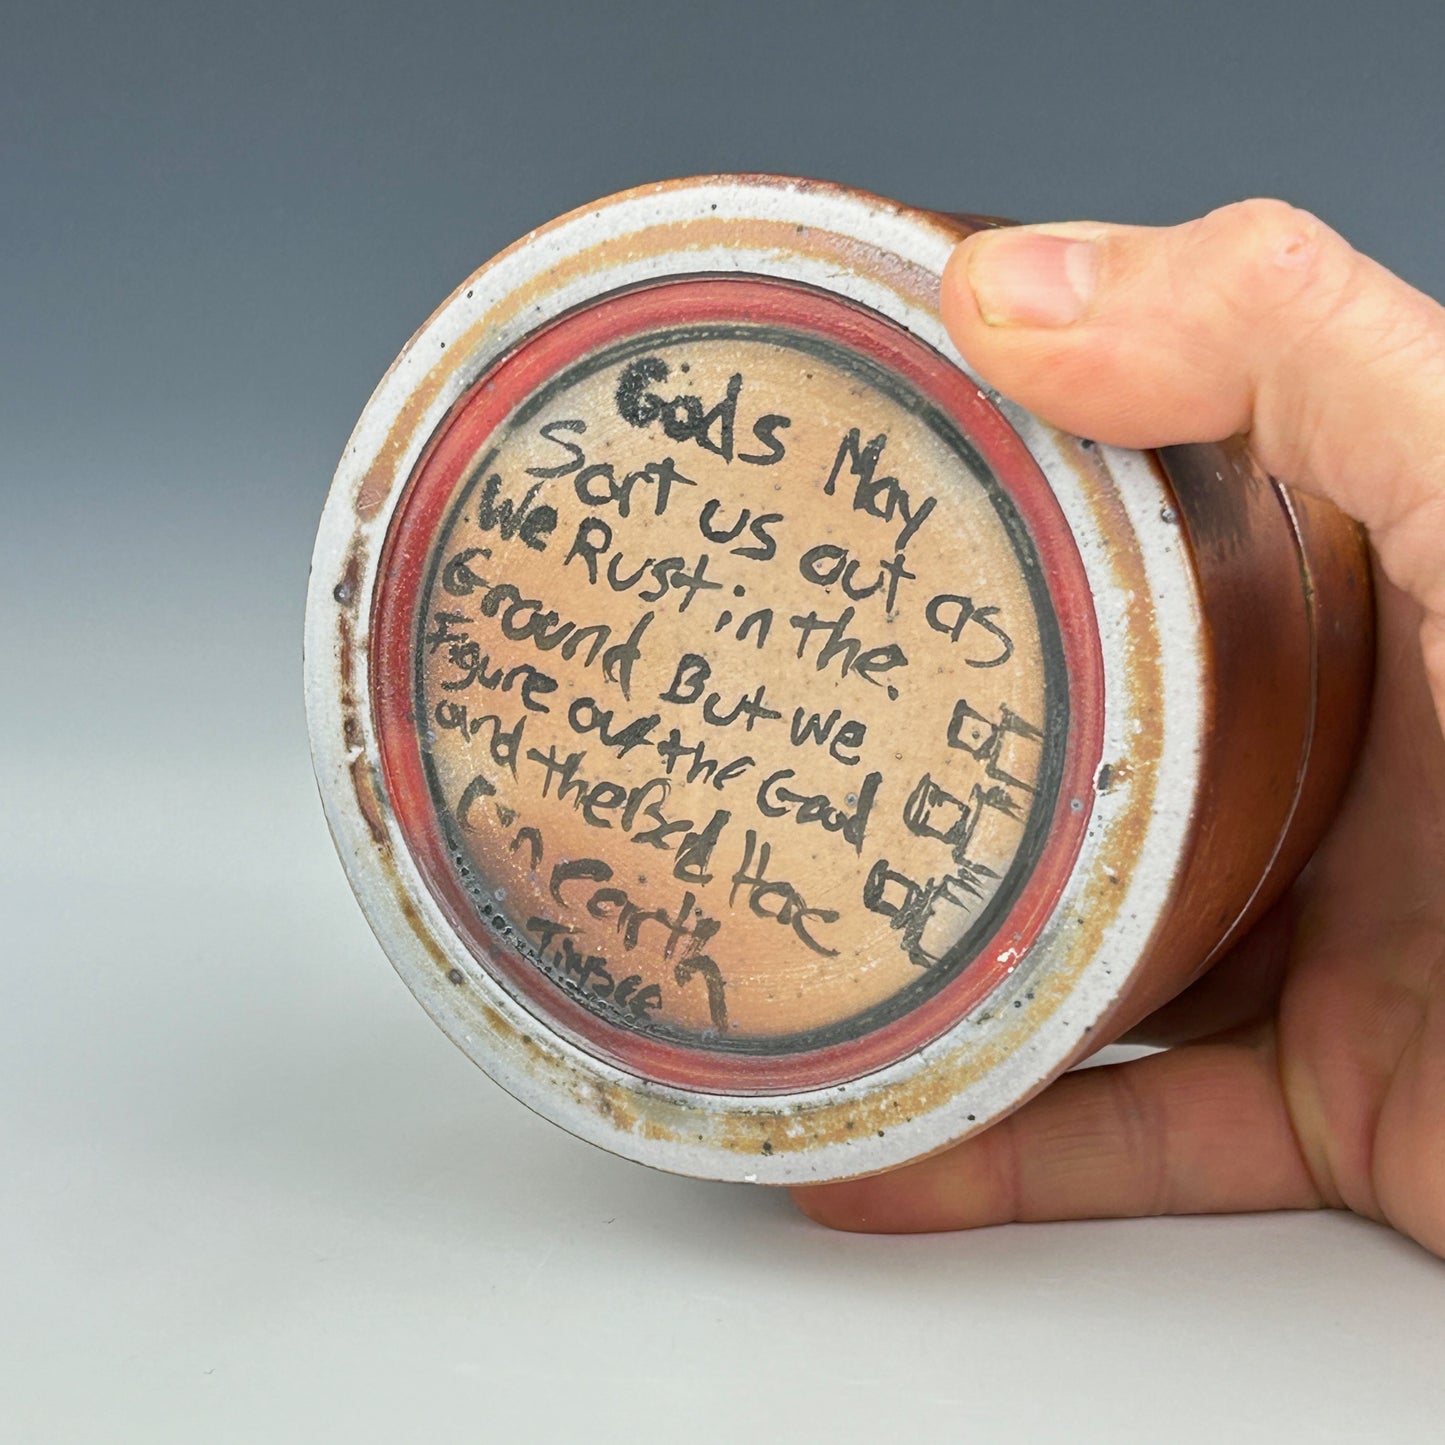 Gods May
Sort us out as
We Rust in the.
Ground But we
Figure out the Good
and the Bad Here
on Earth